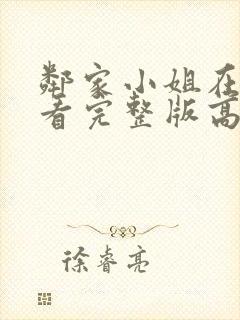 鄰家小姐在
看完整版高
徐睿亮